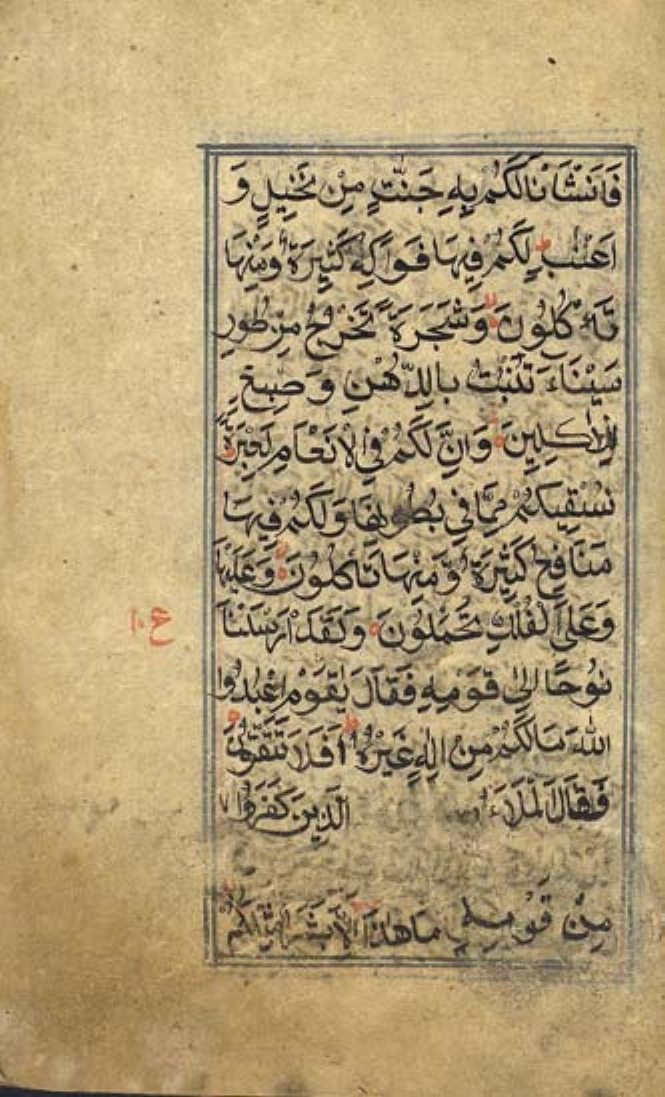 فَاَنْشَاْنَا لَكُمْ بِهٖ جَنّٰتٍ مِنْ نَخِيْلٍ وَ
اَعْنٰبٍ لَكُمْ فِيْهَا فَوَاكِهُ كَثِيْرَةٌ وَمِنْهَا
تَاْكُلُوْنَ وَشَجَرَةً تَخْرُجُ مِنْ طُوْرِ
سَيْنَاءَ تَنْبُتُ بِالدُّهْنِ وَصِبْغٍ
لِلْاٰكِلِيْنَ وَاِنَّ لَكُمْ فِي الْاَنْعَامِ لَعِبْرَةً
نُسْقِيْكُمْ مِمَّا فِيْ بُطُوْنِهَا وَلَكُمْ فِيْهَا
مَنَافِعُ كَثِيْرَةٌ وَّمِنْهَا تَاْكُلُوْنَ وَعَلَيْهَا
وَعَلَى الْفُلْكِ تُحْمَلُوْنَ وَلَقَدْ اَرْسَلْنَا
ع ١٠
نُوْحًا اِلٰى قَوْمِهٖ فَقَالَ يٰقَوْمِ اعْبُدُوا
اللّٰهَ مَا لَكُمْ مِنْ اِلٰهٍ غَيْرُهُ اَفَلَا تَتَّقُوْنَ
فَقَالَ الْمَلَاءُ الَّذِيْنَ كَفَرُوْا
مِنْ قَوْمِهٖ مَا هٰذَا اِلَّا بَشَرٌ مِّثْلُكُمْ